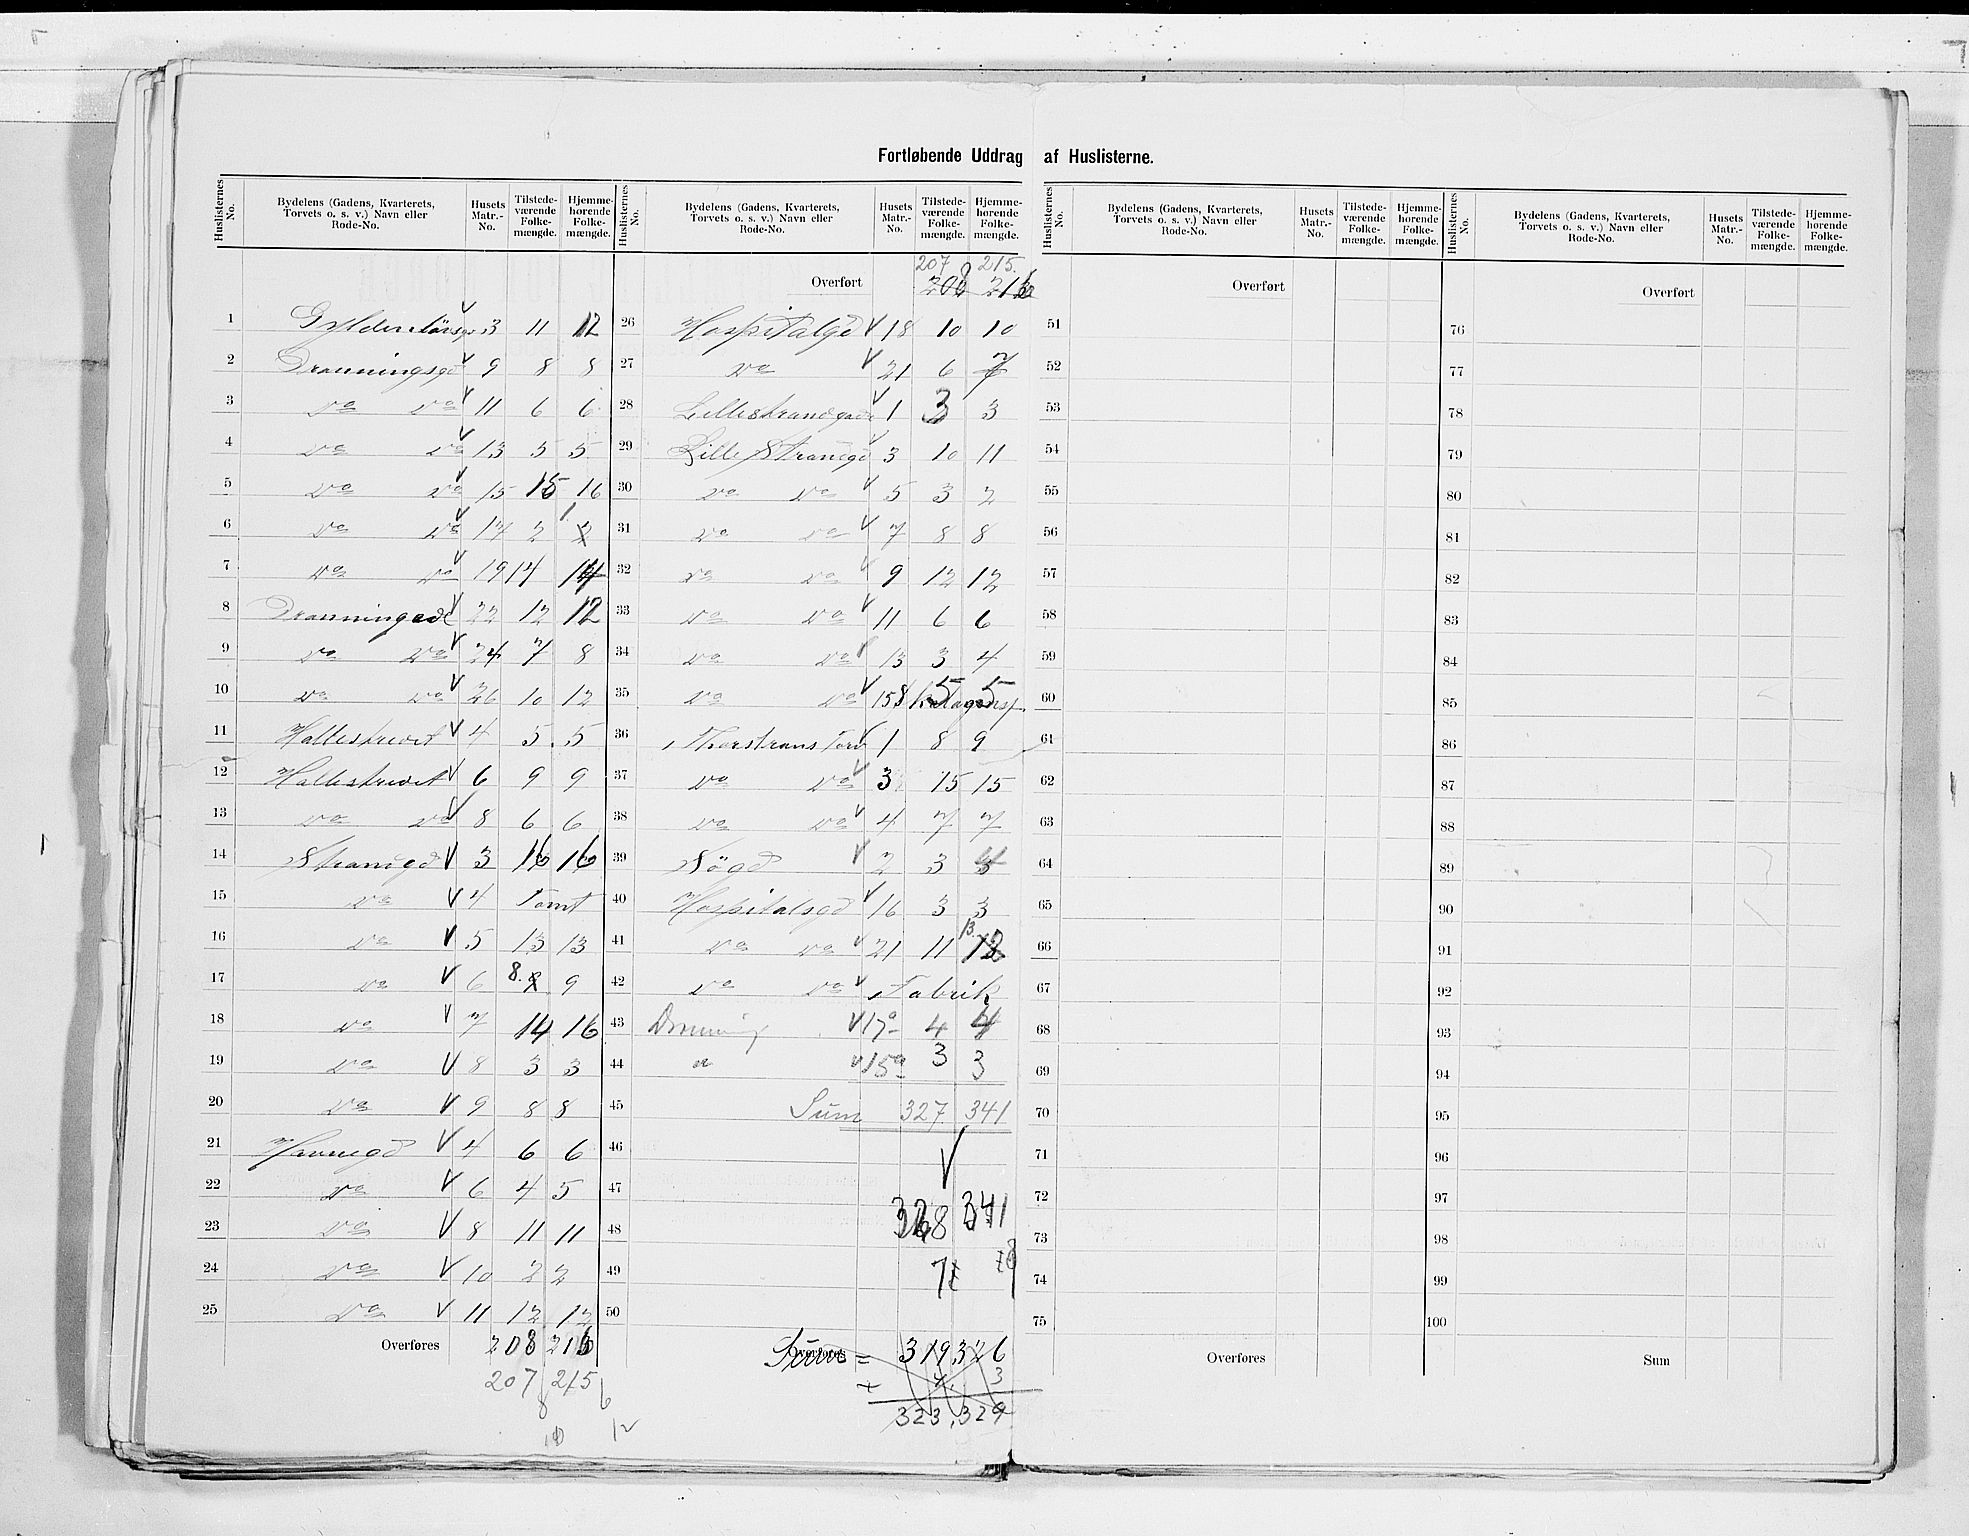 Fortløbende Uddrag af Huslisterne.
Huslisternes No. Bydelens (Gadens, Kvarterets, Torvets o. s. v.) Navn eller Rode-No. Husets Matr.-No. Tilstede-værende Folke-mængde. Hjemme-hørende Folke-mængde.
1 3 11 12
2 Dronningsgd V 9 8 8
3 Do Do V 11 6 6
4 Do Do V 13 5 5
5 Do Do V 15 15 16
6 Do Do V 17 2 2 1
7 Do Do V 19 14 14
8 V 22 12 12
9 Do Do V 24 7 8
10 Do Do V 26 10 12
11 V 4 5 5
12 V 6 9 9
13 Do Do V 8 6 6
14 Strandgd V 3 16 16
15 Do V 4 Tomt
16 Do V 5 13 13
17 Do V 6 8. 9
18 Do V 7 14 16
19 Do V 8 3 3
20 Do V 9 8 8
21 Havnegd V 4 6 6
22 Do V 6 4 5
23 Do V 8 11 11
24 Do V 10 2 2
25 Do V 11 12 12
Overføres 208
207 215
Huslisternes No. Bydelens (Gadens, Kvarterets, Torvets o. s. v.) Navn eller Rode-No. Husets Matr.-No. Tilstede-værende Folke-mængde. Hjemme-hørende Folke-mængde.
207 215.
Overført
26 Hospitalgd V 18 10 10
27 Do V 21 6 7
28 Lillestrandgade V 1 3 3
29 Lille Strandgd V 3 10 11
30 Do Do V 5 3 2
31 Do Do V 7 8 8
32 Do Do V 9 12 12
33 Do Do V 11 6 6
34 Do Do V 13 3 4
35 Do Do V 5 5
36 V 1 8 9
37 Do Do V 3 15 15
38 Do Do V 4 7 7
39 Søgd V 2 3
40 Hospitalsgd V 16 3 3
41 Do Do V 21 11 13
42 Do Do V Fabrik
43 Dronning V 17a 4 4
44 " V 15a 3 3
45 Sum 327 341
46 V
47
48 341
49
50
Overføres
Sum = 319 326
+ 3
323, 329
Huslisternes No. Bydelens (Gadens, Kvarterets, Torvets o. s. v.) Navn eller Rode-No. Husets Matr.-No. Tilstede-værende Folke-mængde. Hjemme-hørende Folke-mængde.
Overført
51
52
53
54
55
56
57
58
59
60
61
62
63
64
65
66
67
68
69
70
71
72
73
74
75
Overføres
Huslisternes No. Bydelens (Gadens, Kvarterets, Torvets o. s. v.) Navn eller Rode-No. Husets Matr.-No. Tilstede-værende Folke-mængde. Hjemme-hørende Folke-mængde.
Overført
76
77
78
79
80
81
82
83
84
85
86
87
88
89
90
91
92
93
94
95
96
97
98
99
100
Sum